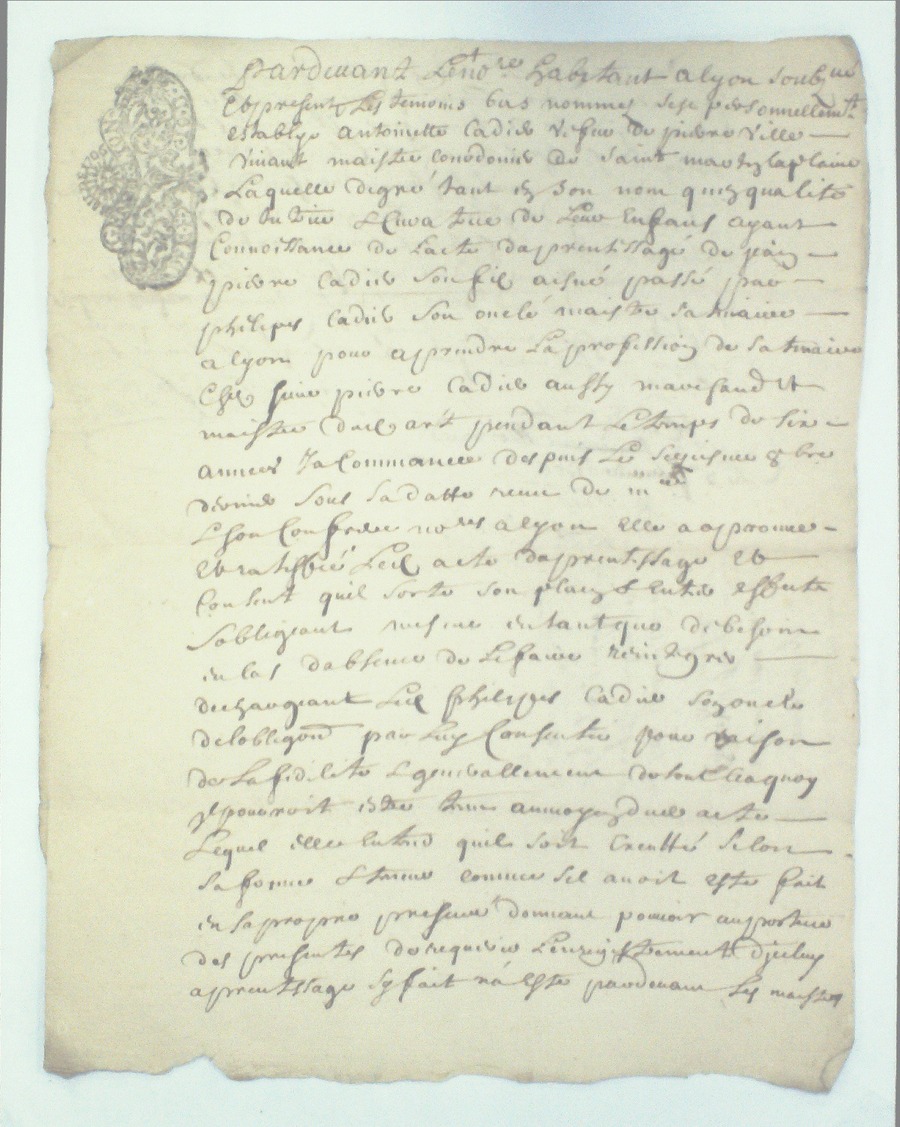 Pardevant Le no.re habitant a lyon soub.né
Et present Les temoins bas nommez sest personnellem.t
establye antoinette Cadier vefue de pierre ville
vivant maistre de saint martin la plaine
Laquelle de gré tant en son nom quen qualité
de tutrice & Curatrice de Leur Enfans ayant
Connoissance de Lacte daprentissage de jean
pierre Cadier son filz aisné passé par
philipes Cadier son oncle maistre satinaire
a lyon pour aprendre La profession de satinaire
Chez sieur pierre Cadier aussy marchand &
maistre dud art pendant Le temps de six
annees Ja Commancé despuis Le 8 bre
dernier sous sa datte receu de m.e
& son Confrere no.res a lyon elle a aprouvé
Et ratiffié Led acte daprentissage Et
Consent quil sorte son plain & Entier effect
sobligeant mesme en tant que de besoin
en cas dabsence de Le faire reintegrer
dechargeant Led philipes Cadier son oncle
de lobligaon par Luy Consentie pour raison
de La fidelité & generallement de tout Ce a quoy
Jl pouvoit estre tenu au moyen dud acte
Lequel elle Entend quil soit Executté selon
sa forme & teneur comme sil avoit esté fait
en sa propre presence donnant pouvoir au porteur
des presentes de requerir Lenregistrement diceluy
aprentissage sy fait na esté pardevant Les maistres